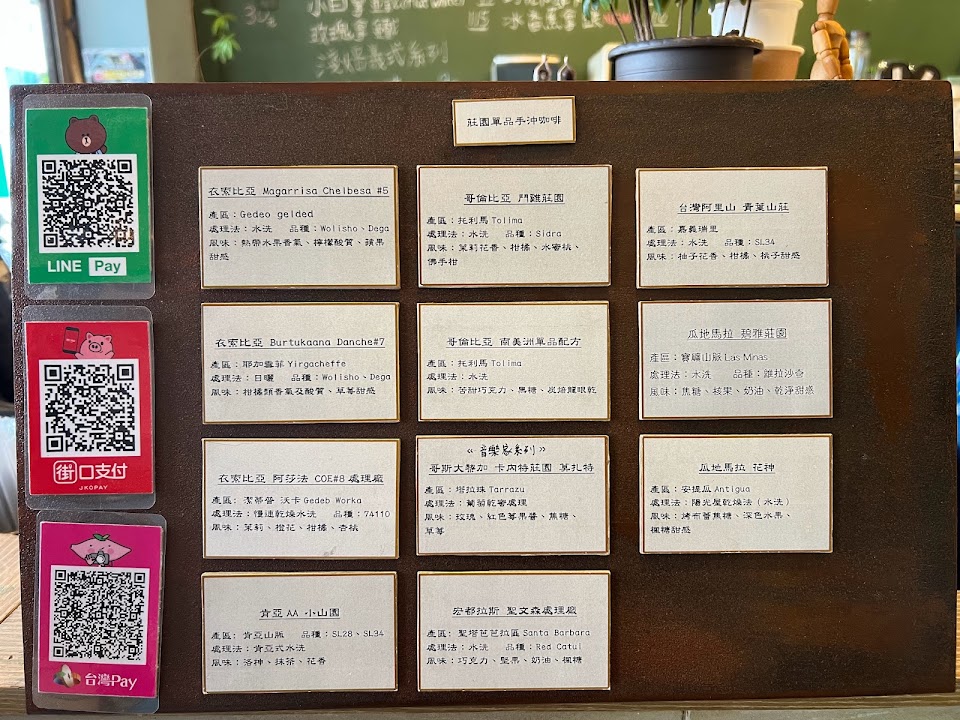 玫瑰拿鐵
淺焙義式系列
莊園單品手沖咖啡
LINE Pay
街口支付
JKOPAY
台灣Pay
衣索比亞 Magarrisa Chelbesa #5
產區：Gedeo gelded
處理法：水洗 品種：Wolisho、Dega
風味：熱帶水果香氣、檸檬酸質、蘋果
甜感
哥倫比亞 鬥雞莊園
產區：托利馬 Tolima
處理法：水洗 品種：Sidra
風味：茉莉花香、柑橘、水蜜桃、
佛手柑
台灣阿里山 青葉山莊
產區：嘉義瑞里
處理法：水洗 品種：SL34
風味：柚子花香、柑橘、桃子甜感
衣索比亞 Burtukaana Danche#7
產區：耶加雪菲 Yirgacheffe
處理法：日曬 品種：Wolisho、Dega
風味：柑橘類香氣及酸質、草莓甜感
哥倫比亞 南美洲單品配方
產區：托利馬 Tolima
處理法：水洗
風味：苦甜巧克力、黑糖、炭焙龍眼乾
瓜地馬拉 碧雅莊園
產區：寶礦山脈 Las Minas
處理法：水洗 品種：維拉沙奇
風味：焦糖、核果、奶油、乾淨甜感
衣索比亞 阿莎法 COE#8 處理廠
產區：潔蒂普 沃卡 Gedeb Worka
處理法：慢速乾燥水洗 品種：74110
風味：茉莉、橙花、柑橘、杏桃
《音樂家系列》
哥斯大黎加 卡內特莊園 莫扎特
產區：塔拉珠 Tarrazu
處理法：葡萄乾蜜處理
風味：玫瑰、紅色莓果醬、焦糖、
草莓
瓜地馬拉 花神
產區：安提瓜 Antigua
處理法：陽光屋乾燥法（水洗）
風味：烤布蕾焦糖、深色水果、
楓糖甜感
肯亞 AA 小山園
產區：肯亞山脈 品種：SL28、SL34
處理法：肯亞式水洗
風味：洛神、抹茶、花香
宏都拉斯 聖文森處理廠
產區：聖塔芭芭拉區 Santa Barbara
處理法：水洗 品種：Red Catui
風味：巧克力、堅果、奶油、楓糖